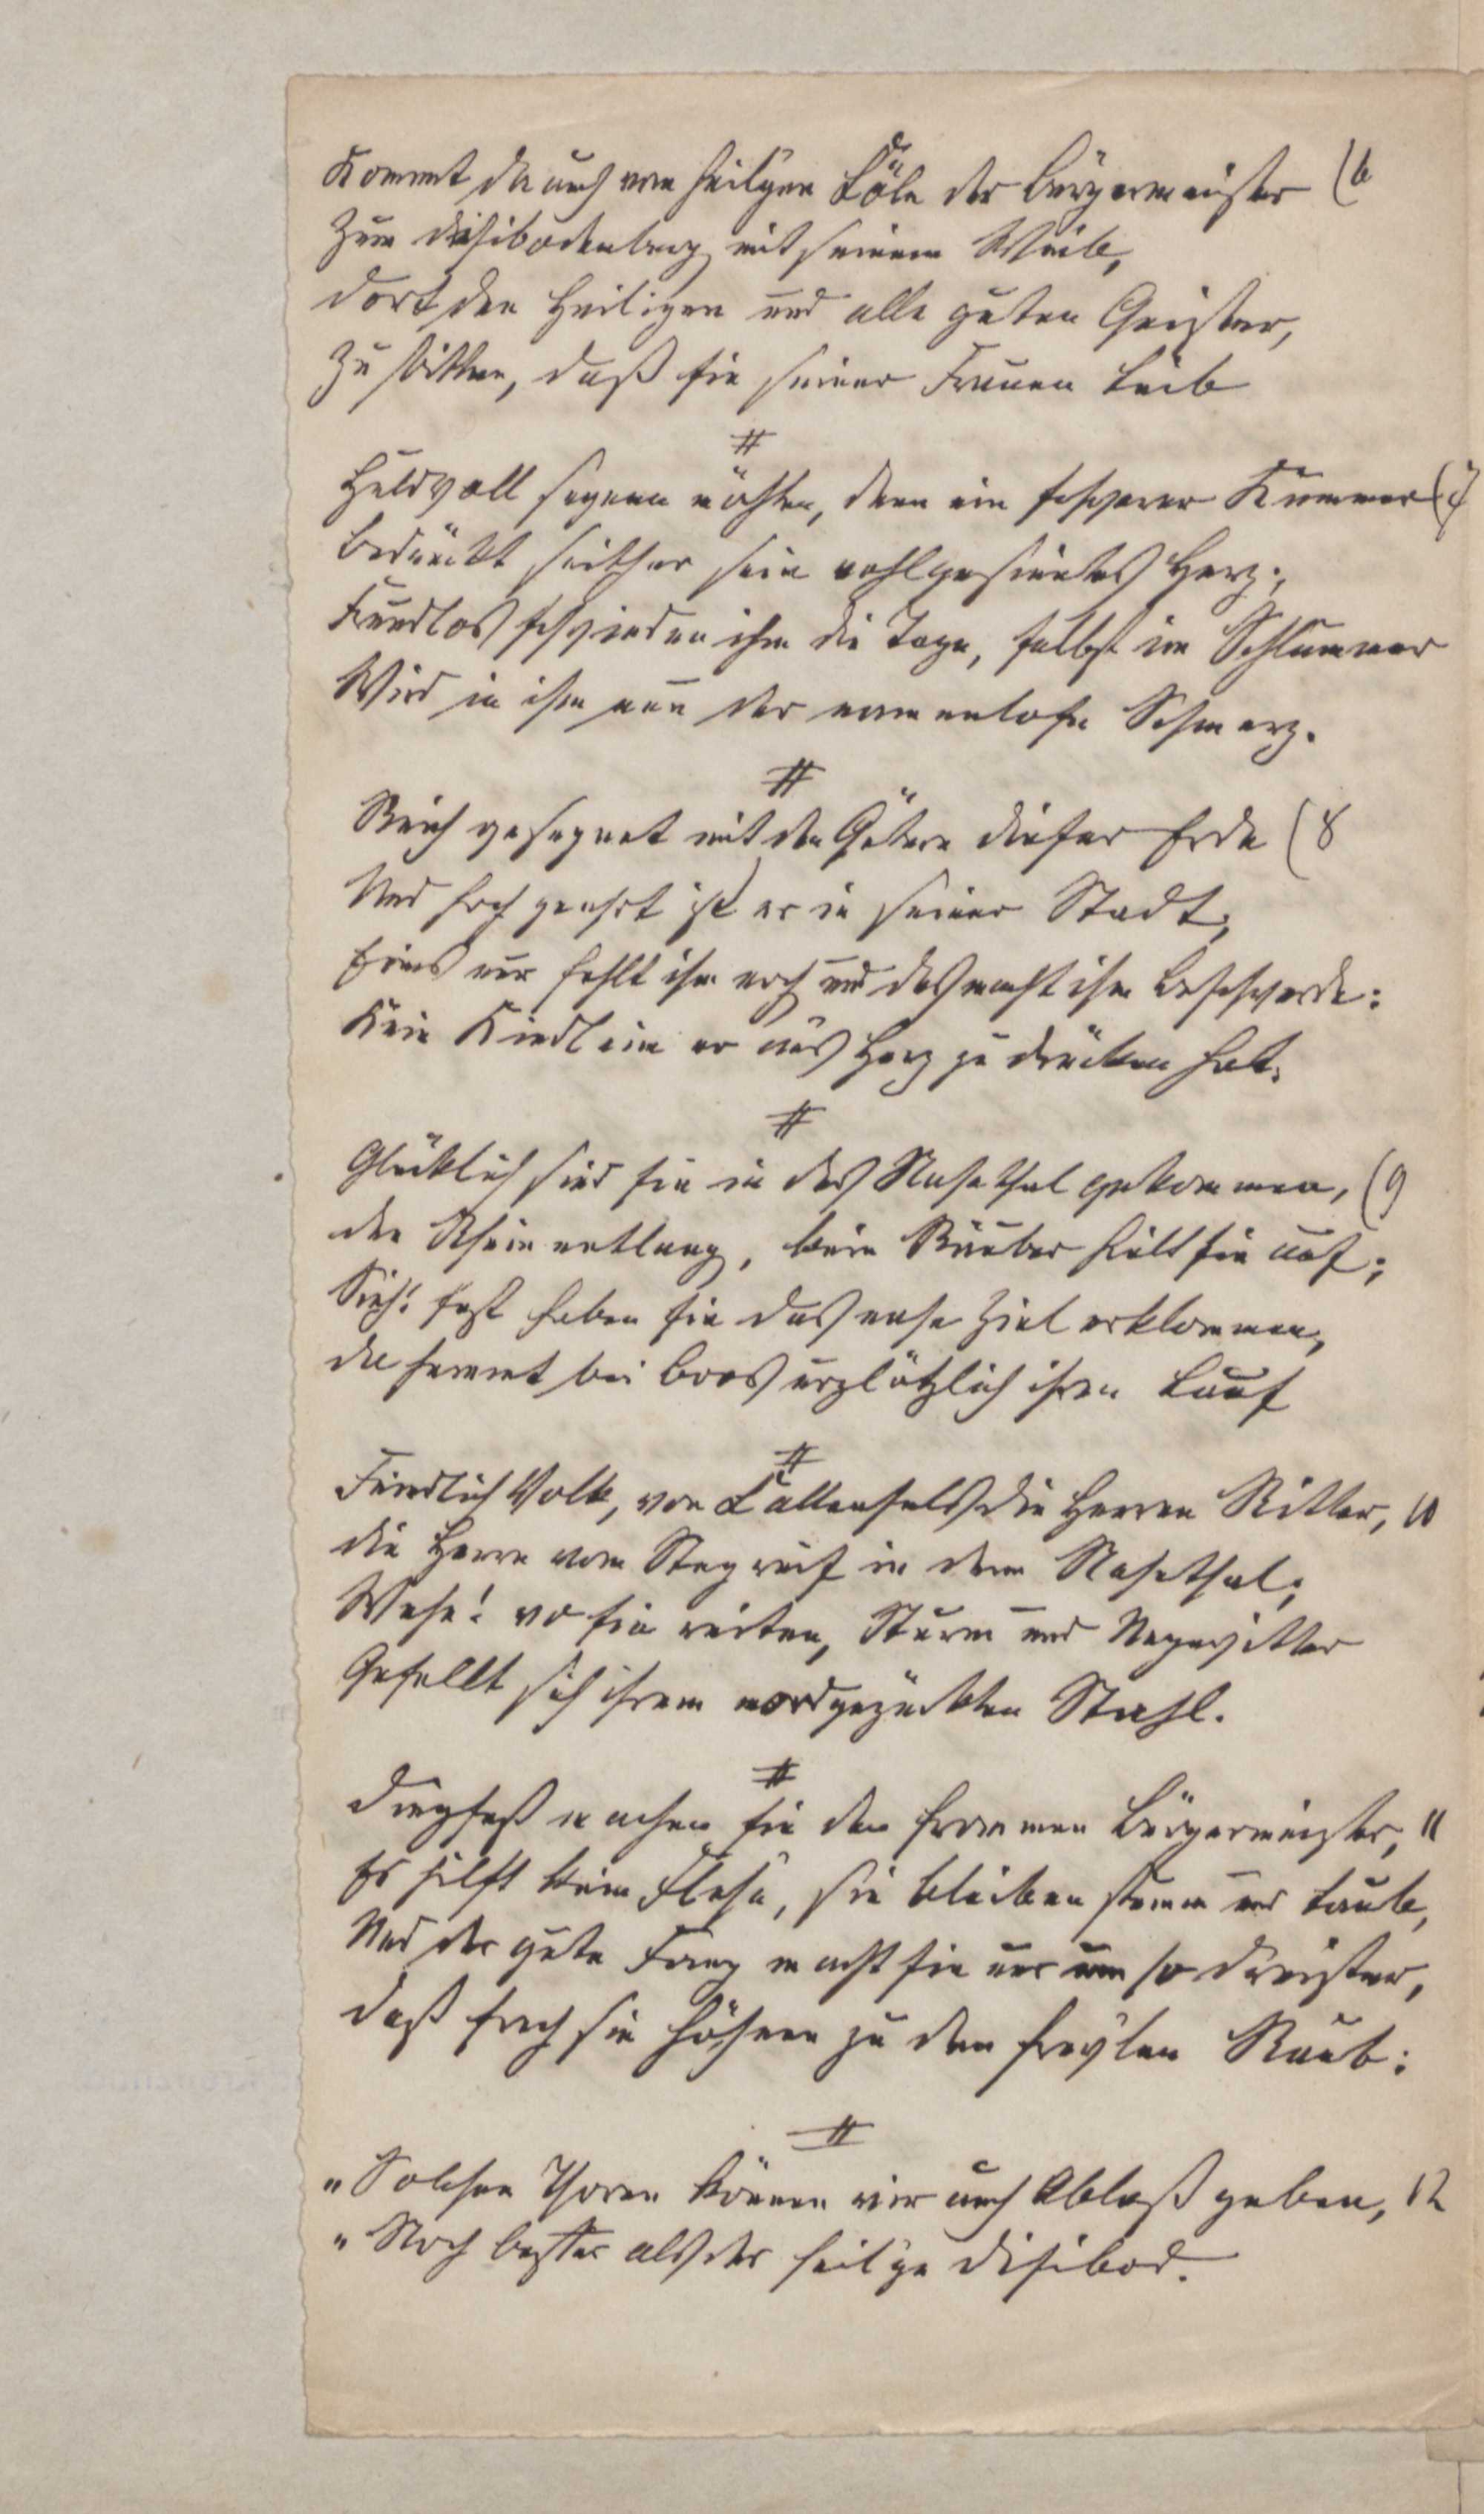 Kommt da auch vom heilgen Cöln der Bürgermeister (6
Zum Disibodenberg mit seinem Weib,
Dort den Heiligen und alle guten Geister,
Zu bitten, daß sie seiner Frauen Leib
#
Huldvoll segnen möchten, denn ein schwerer Kummer (7
Bedrückt seither sein wohlgesinntes Herz;
Freudlos schwinden ihm die Tage, selbst im Schlummer
Wird in ihm neu der namenlose Schmerz.
#
Reich gesegnet mit den Gütern dieser Erde (8
Und hoch geehrt ist er in seiner Stadt,
Eines nur fehlt ihm noch und das macht ihm Beschwerde:
Kein Kindlein er ans Herz zu drücken hat.
#
Glücklich sind sie in das Nahethal gekommen, (9
Den Rhein entlang, kein Räuber hielt sie auf;
Sieh! fast haben sie das nahe Ziel erklommen,
Da hemmt bei Boos urplötzlich ihren Lauf
#
Feindlich Volk, von Callenfels die Herren Ritter, 10
Die Herrn vom Stegreif in dem Nahethal;
Wehe! wo sie reiten, Sturm und Ungewitter
Gesellt sich ihrem mordgezückten Stahl.
#
Dingfest machen sie den frommen Bürgermeister, 11
Es hilft kein Flehn, sie bleiben stumm und taub,
Und der gute Fang macht sie nur um so dreister,
Daß frech sie höhnen zu dem frevlen Raub:
#
„Solchen Thoren können wir auch Ablaß geben, 12
„Noch besser als der heilge Disibod.